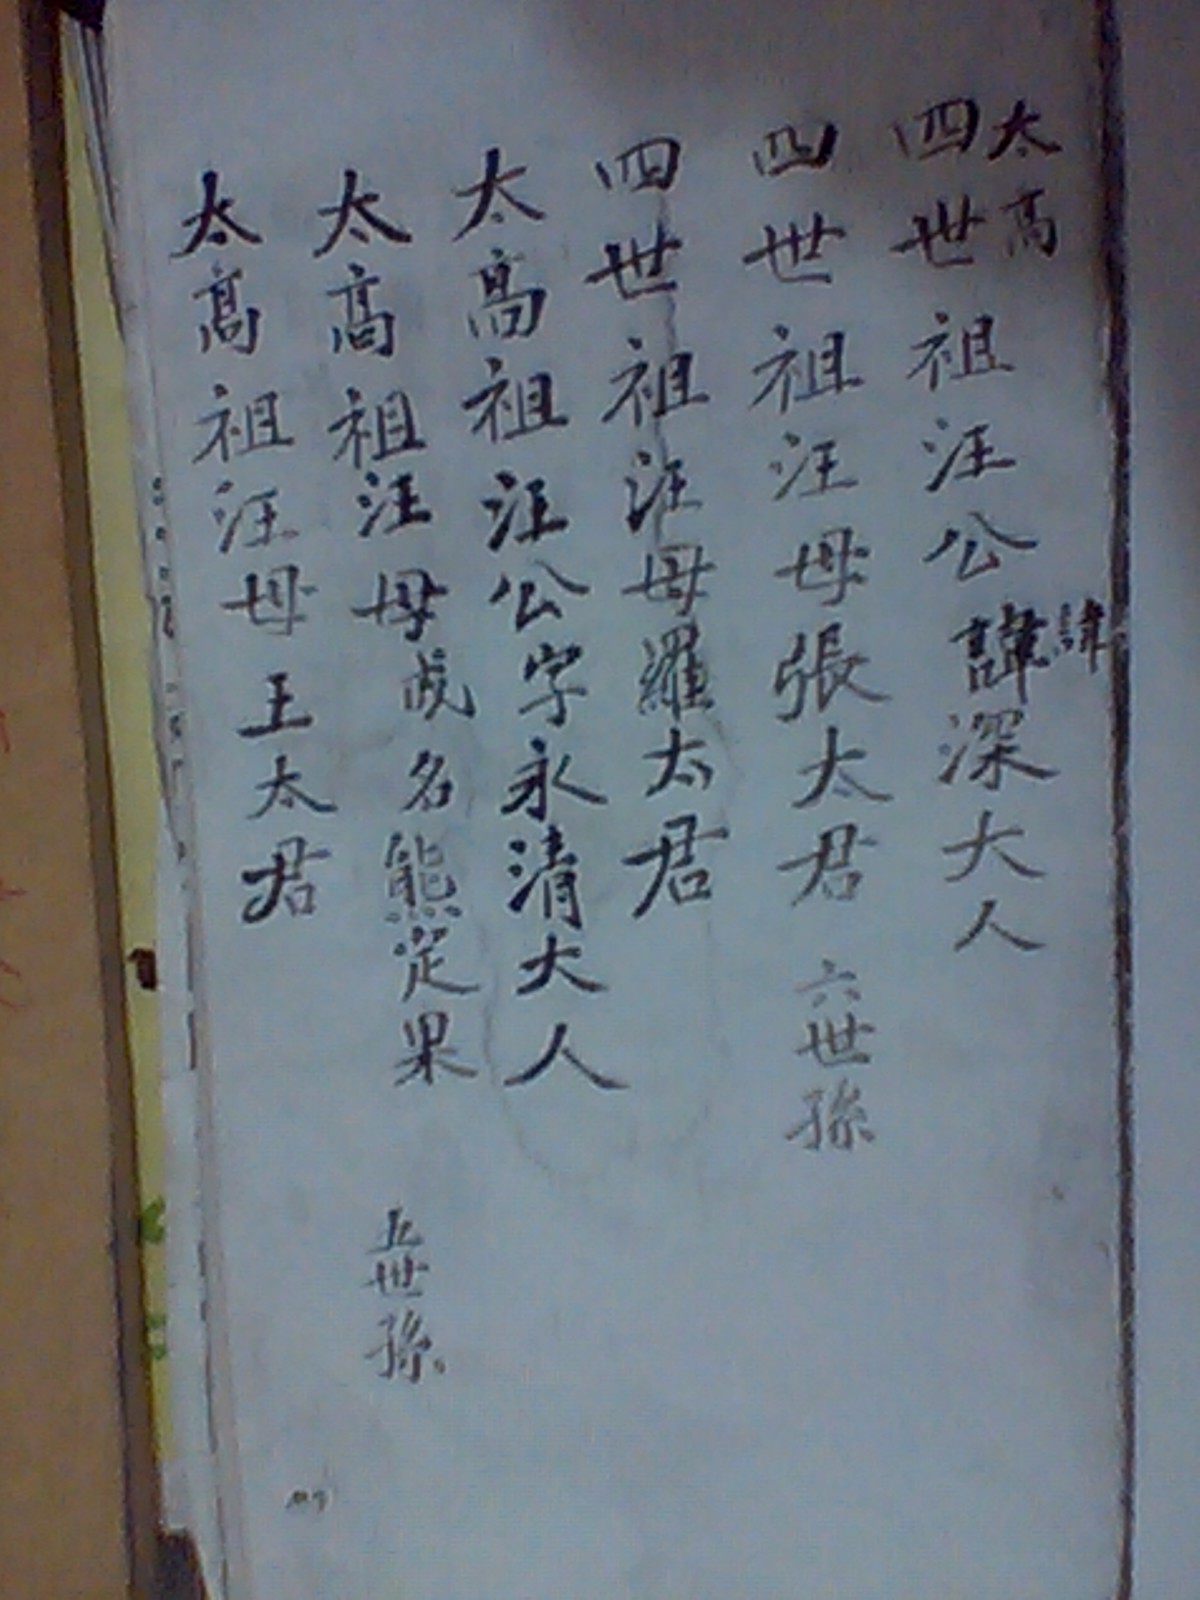 太高
四世祖汪公諱深大人
諱
四世祖汪母張太君 六世孫
四世祖汪母羅太君
太高祖汪公字永清大人
太高祖汪母成名熊定果 五世孫
太高祖汪母王太君